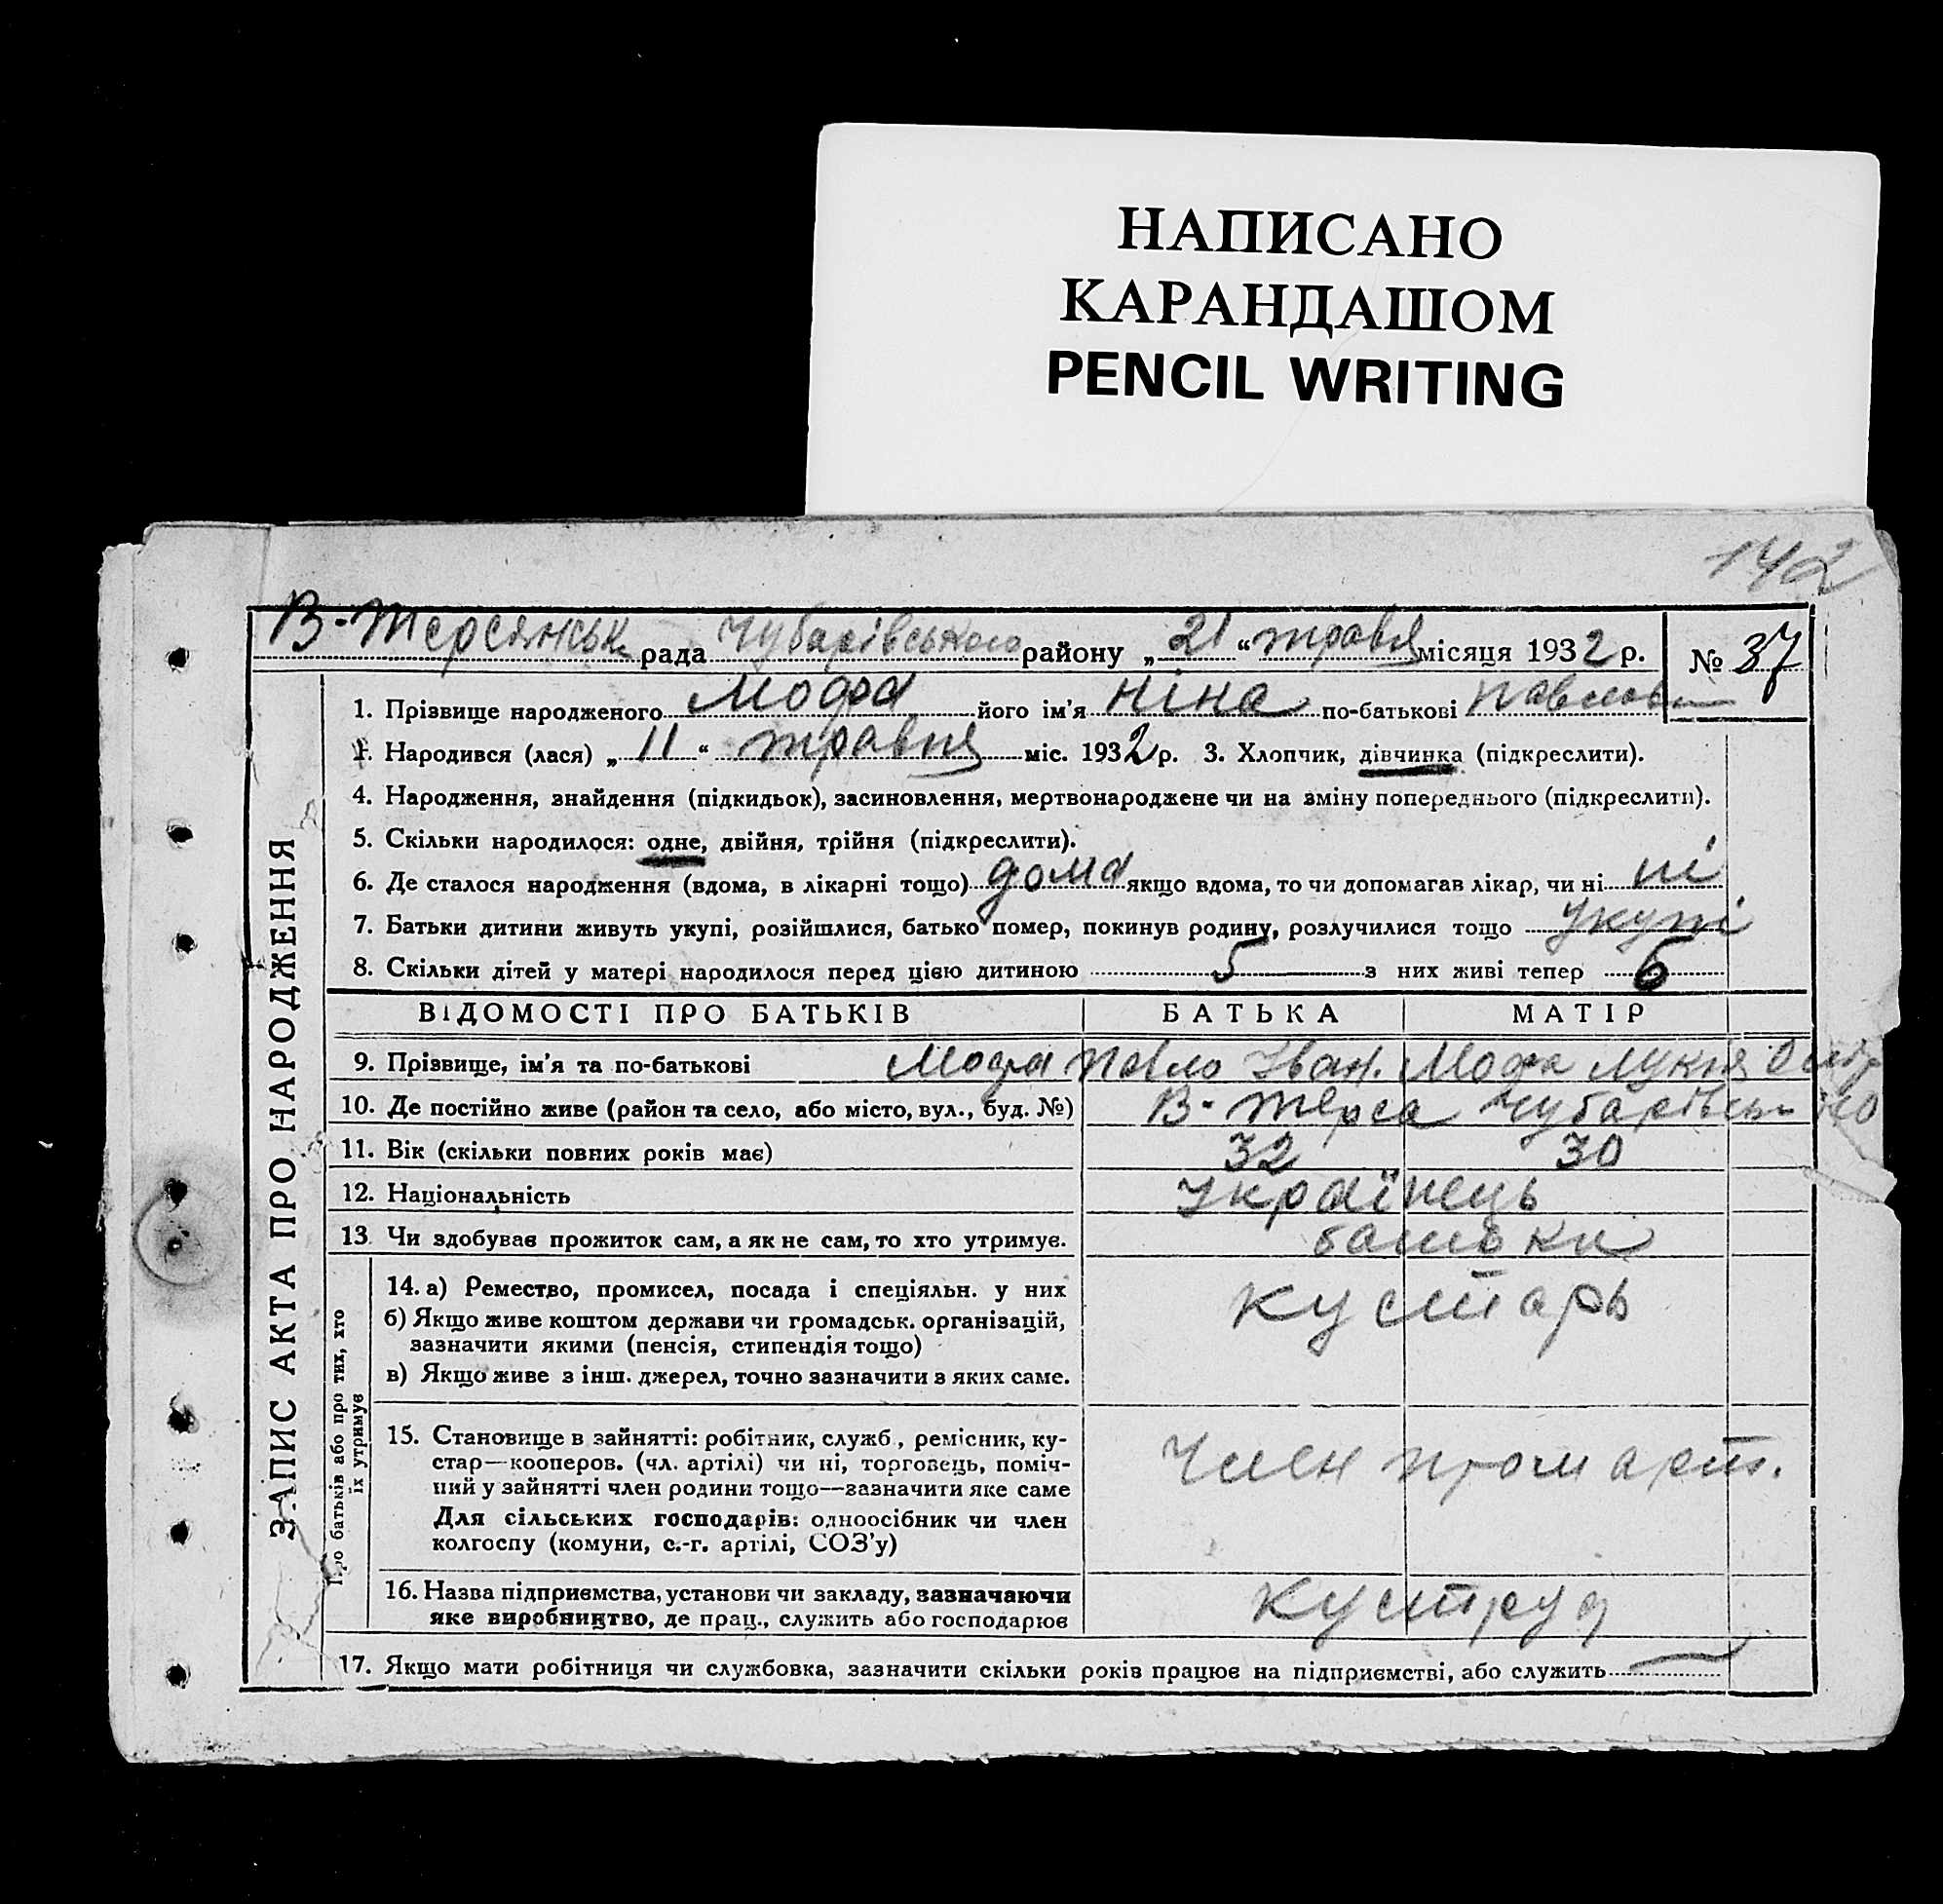 НАПИСАНО
КАРАНДАШОМ
PENCIL WRITING
142
В-Терсянськ рада Чубарівського району „ 21 “ травня місяця 1932 р. № 37
ЗАПИС АКТА ПРО НАРОДЖЕННЯ
1. Прізвище народженого Мофа його ім'я Ніна по-батькові Павлов
Народився (лася) „ 11 “ травня міс. 1932 р. 3. Хлопчик, дівчинка (підкреслити).
4. Народження, знайдення (підкидьок), засиновлення, мертвонароджене чи на зміну попереднього (підкреслити).
5. Скільки народилося: одне, двійня, трійня (підкреслити).
6. Де сталося народження (вдома, в лікарні тощо) дома якщо вдома, то чи допомагав лікар, чи ні ні
7. Батьки дитини живуть укупі, розійшлися, батько помер, покинув родину, розлучилися тощо укупі
8. Скільки дітей у матері народилося перед цією дитиною 5 з них живі тепер 6
ВІДОМОСТІ ПРО БАТЬКІВ БАТЬКА МАТІР
9. Прізвище, ім'я та по-батькові Мофа Павло Іван. Мофа Лукія
10. Де постійно живе (район та село, або місто, вул., буд. №) В-Терса Чубарівського
11. Вік (скільки повних років має) 32 30
12. Національність Українець
13. Чи здобуває прожиток сам, а як не сам, то хто утримує. батьки
Про батьків або про тих, хто
їх утримує
14. а) Ремество, промисел, посада і спеціяльн. у них кустарь
б) Якщо живе коштом держави чи громадськ. організацій,
зазначити якими (пенсія, стипендія тощо)
в) Якщо живе з інш. джерел, точно зазначити з яких саме.
15. Становище в зайнятті: робітник, служб., ремісник, ку-
стар—кооперов. (чл. артілі) чи ні, торговець, поміч-
ний у зайнятті член родини тощо—зазначити яке саме
Член пром арт.
Для сільських господарів: одноосібник чи член
колгоспу (комуни, с.-г. артілі, СОЗ'у)
16. Назва підприємства, установи чи закладу, зазначаючи
яке виробництво, де прац., служить або господарює
Куструд
17. Якщо мати робітниця чи службовка, зазначити скільки років працює на підприємстві, або служить